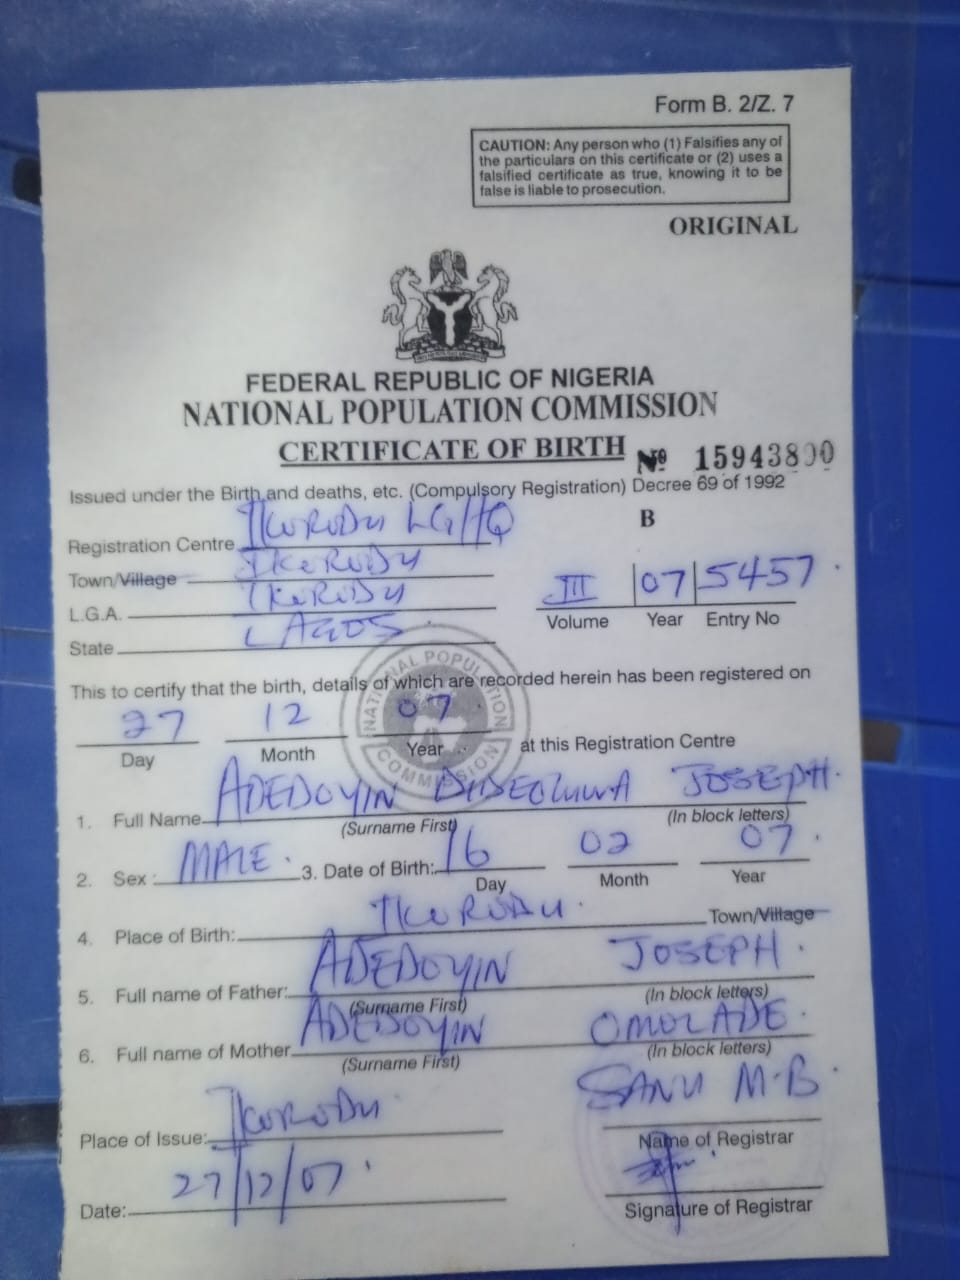 Form B. 2/Z. 7
CAUTION: Any person who (1) Falsifies any of
the particulars on this certificate or (2) uses a
falsified certificate as true, knowing it to be
false is liable to prosecution.
ORIGINAL
FEDERAL REPUBLIC OF NIGERIA
NATIONAL POPULATION COMMISSION
CERTIFICATE OF BIRTH № 15943800
Issued under the Birth and deaths, etc. (Compulsory Registration) Decree 69 of 1992
B
Registration Centre IKORODU LG/HQ
Town/Village IKORODU
L.G.A. IKORODU
III 07 5457
Volume Year Entry No
State LAGOS
NATIONAL POPULATION COMMISSION
This to certify that the birth, details of which are recorded herein has been registered on
27 12 07 at this Registration Centre
Day Month Year
1. Full Name ADEDOYIN JOSEPH.
(Surname First) (In block letters)
2. Sex: MALE. 3. Date of Birth: 16 02 07.
Day Month Year
4. Place of Birth: IKORODU. Town/Village
5. Full name of Father: ADEDOYIN JOSEPH.
(Surname First) (In block letters)
6. Full name of Mother ADEDOYIN OMOLADE.
(Surname First) (In block letters)
SANU M.B
Place of Issue: IKORODU
Name of Registrar
Date: 27/12/07
Signature of Registrar